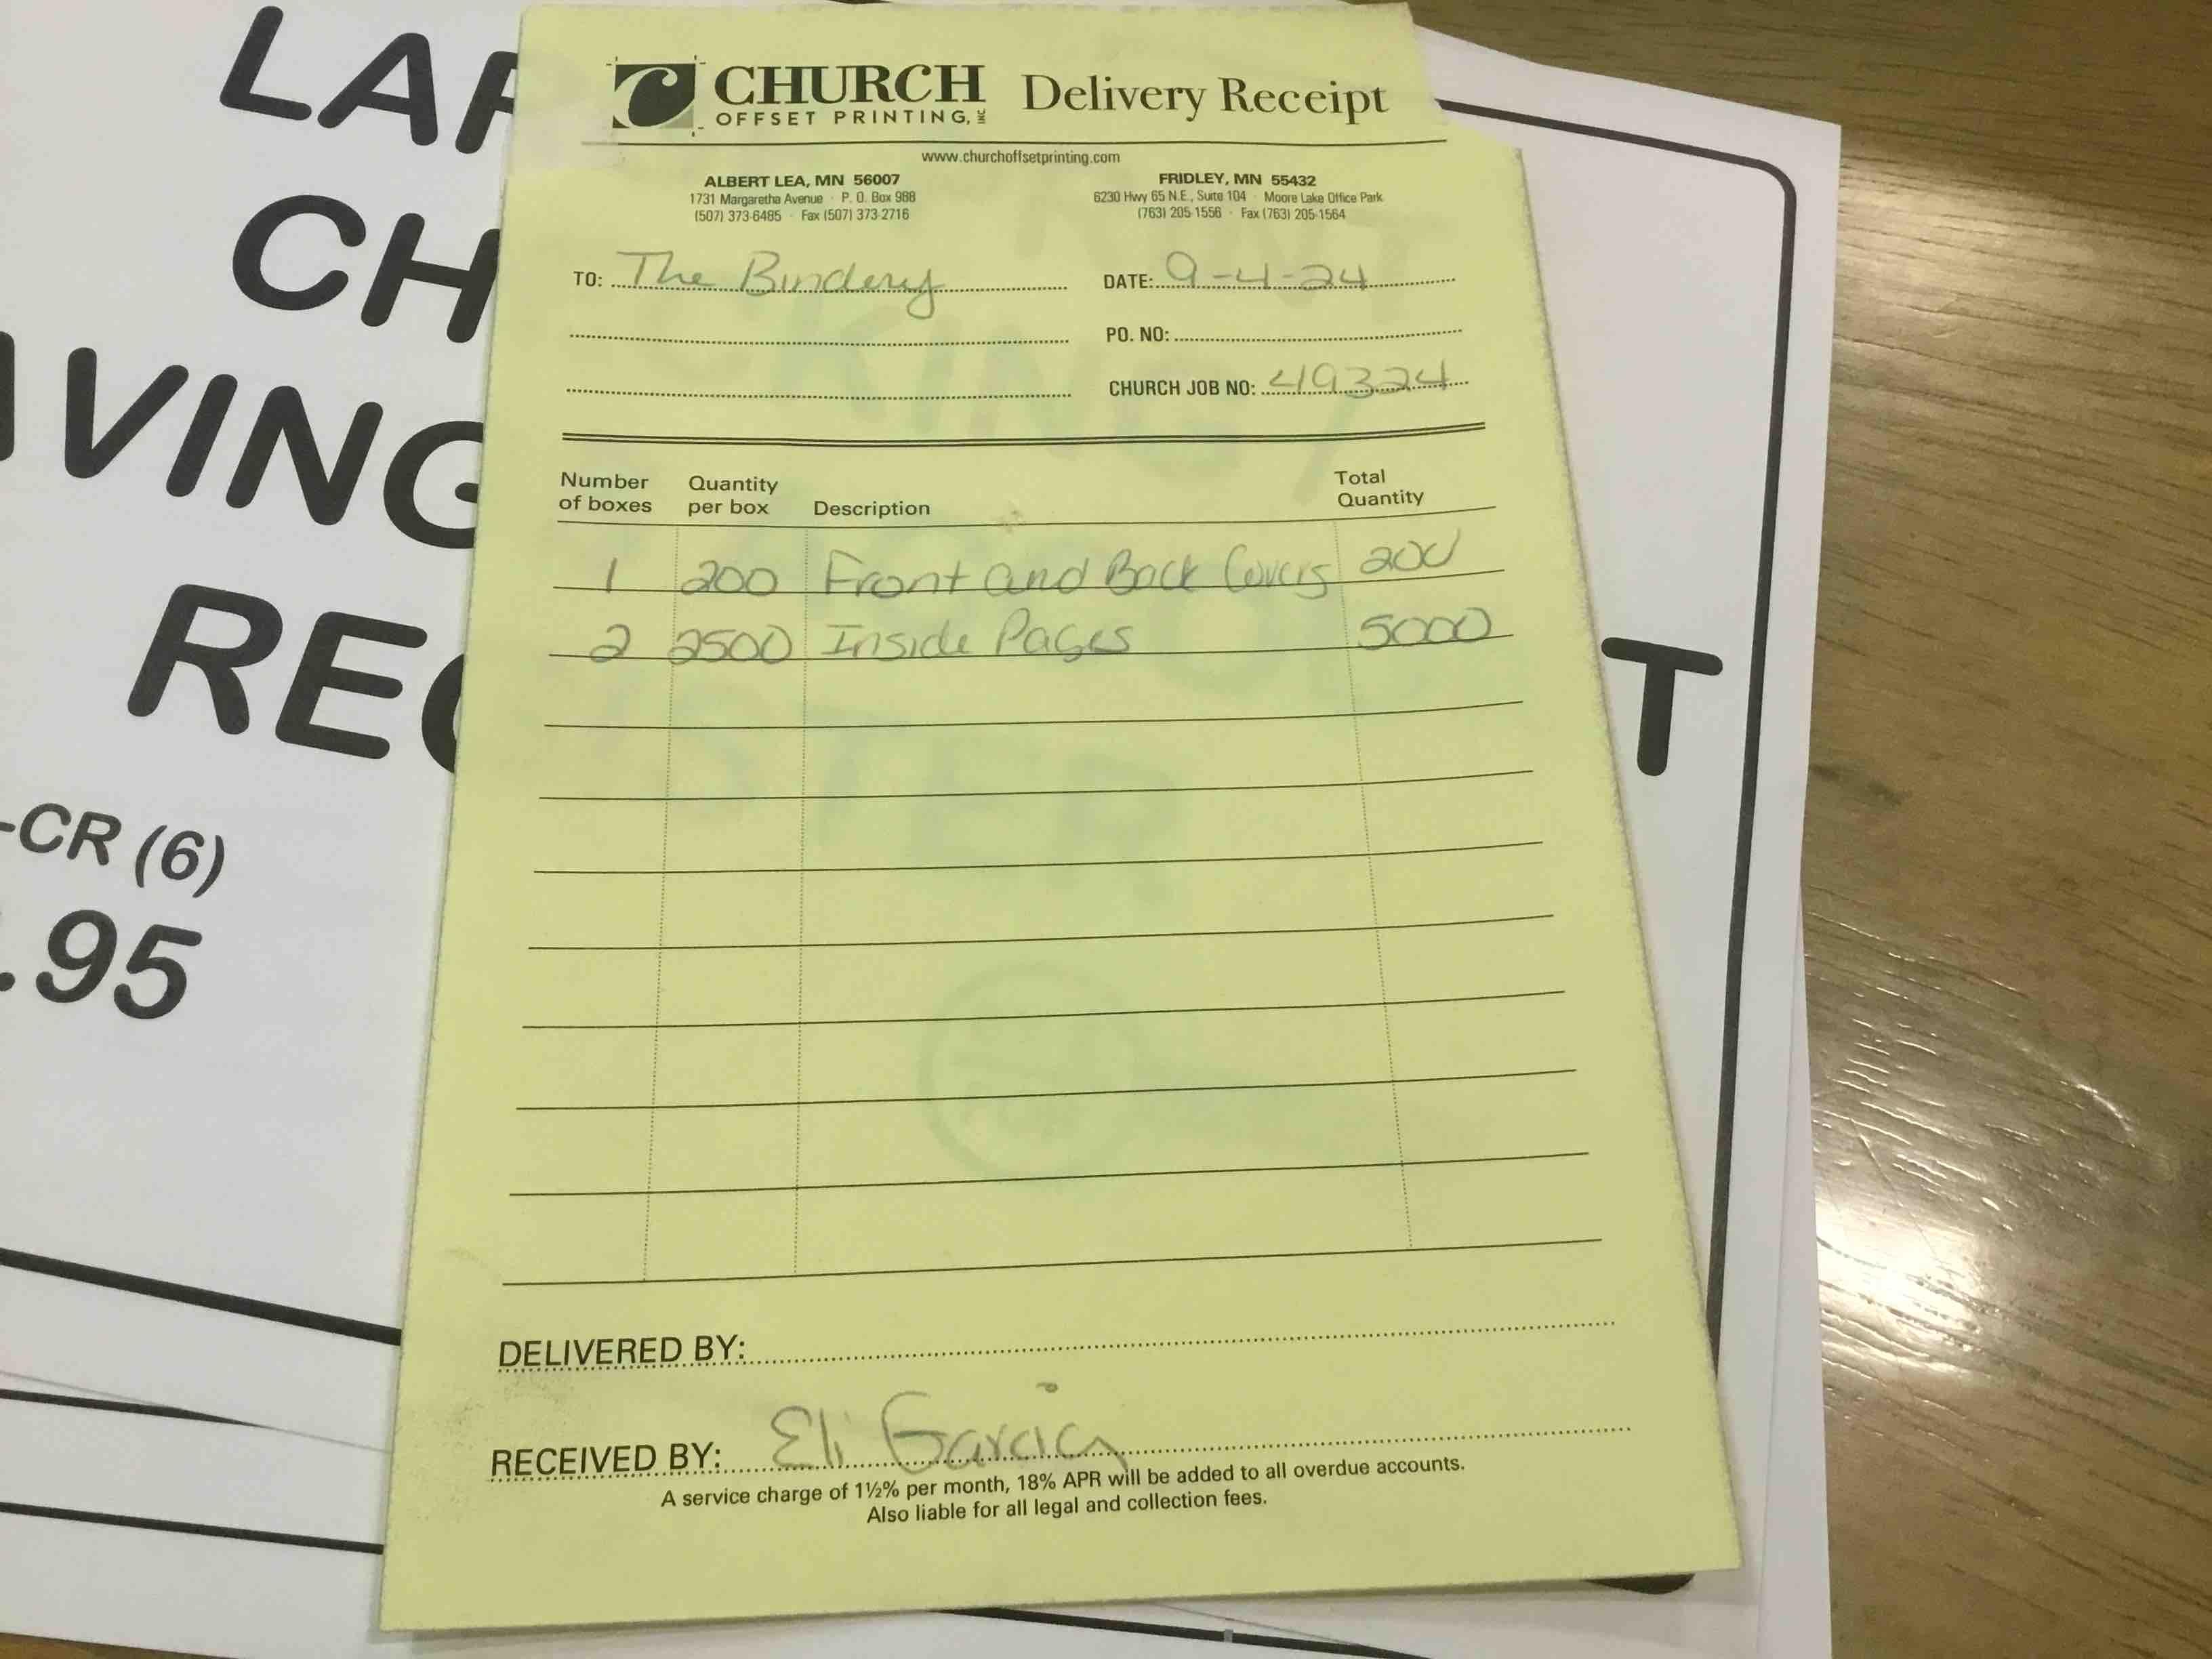 LAR
CH
AVING
REG
-CR (6)
.95
T
CHURCH
OFFSET PRINTING, INC
Delivery Receipt
www.churchoffsetprinting.com
ALBERT LEA, MN 56007
1731 Margaretha Avenue · P. O. Box 988
(507) 373-6485 · Fax (507) 373-2716
FRIDLEY, MN 55432
6230 Hwy 65 N.E., Suite 104 · Moore Lake Office Park
(763) 205-1556 · Fax (763) 205-1564
TO: The Bindery
DATE: 9-4-24
PO. NO:
CHURCH JOB NO: 49324
Number of boxes Quantity per box Description Total Quantity
1 200 Front and Back Covers 200
2 2500 Inside Pages 5000
DELIVERED BY:
RECEIVED BY: Eli Garcia
A service charge of 1½% per month, 18% APR will be added to all overdue accounts.
Also liable for all legal and collection fees.